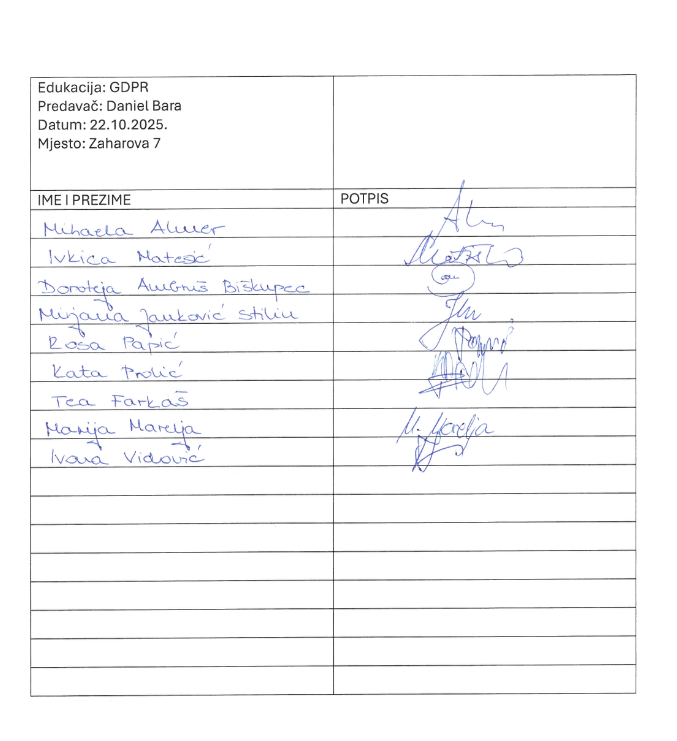 Edukacija: GDPR
Predavač: Daniel Bara
Datum: 22.10.2025.
Mjesto: Zaharova 7
IME I PREZIME POTPIS
Mihaela Almer
Ivkica Matesić
Doroteja Ambruš Biškupec
Mirjana Janković Stiliu
Rosa Papić
Kata Prolić
Tea Farkaš
Marija Marelja M. Marelja
Ivana Vidović